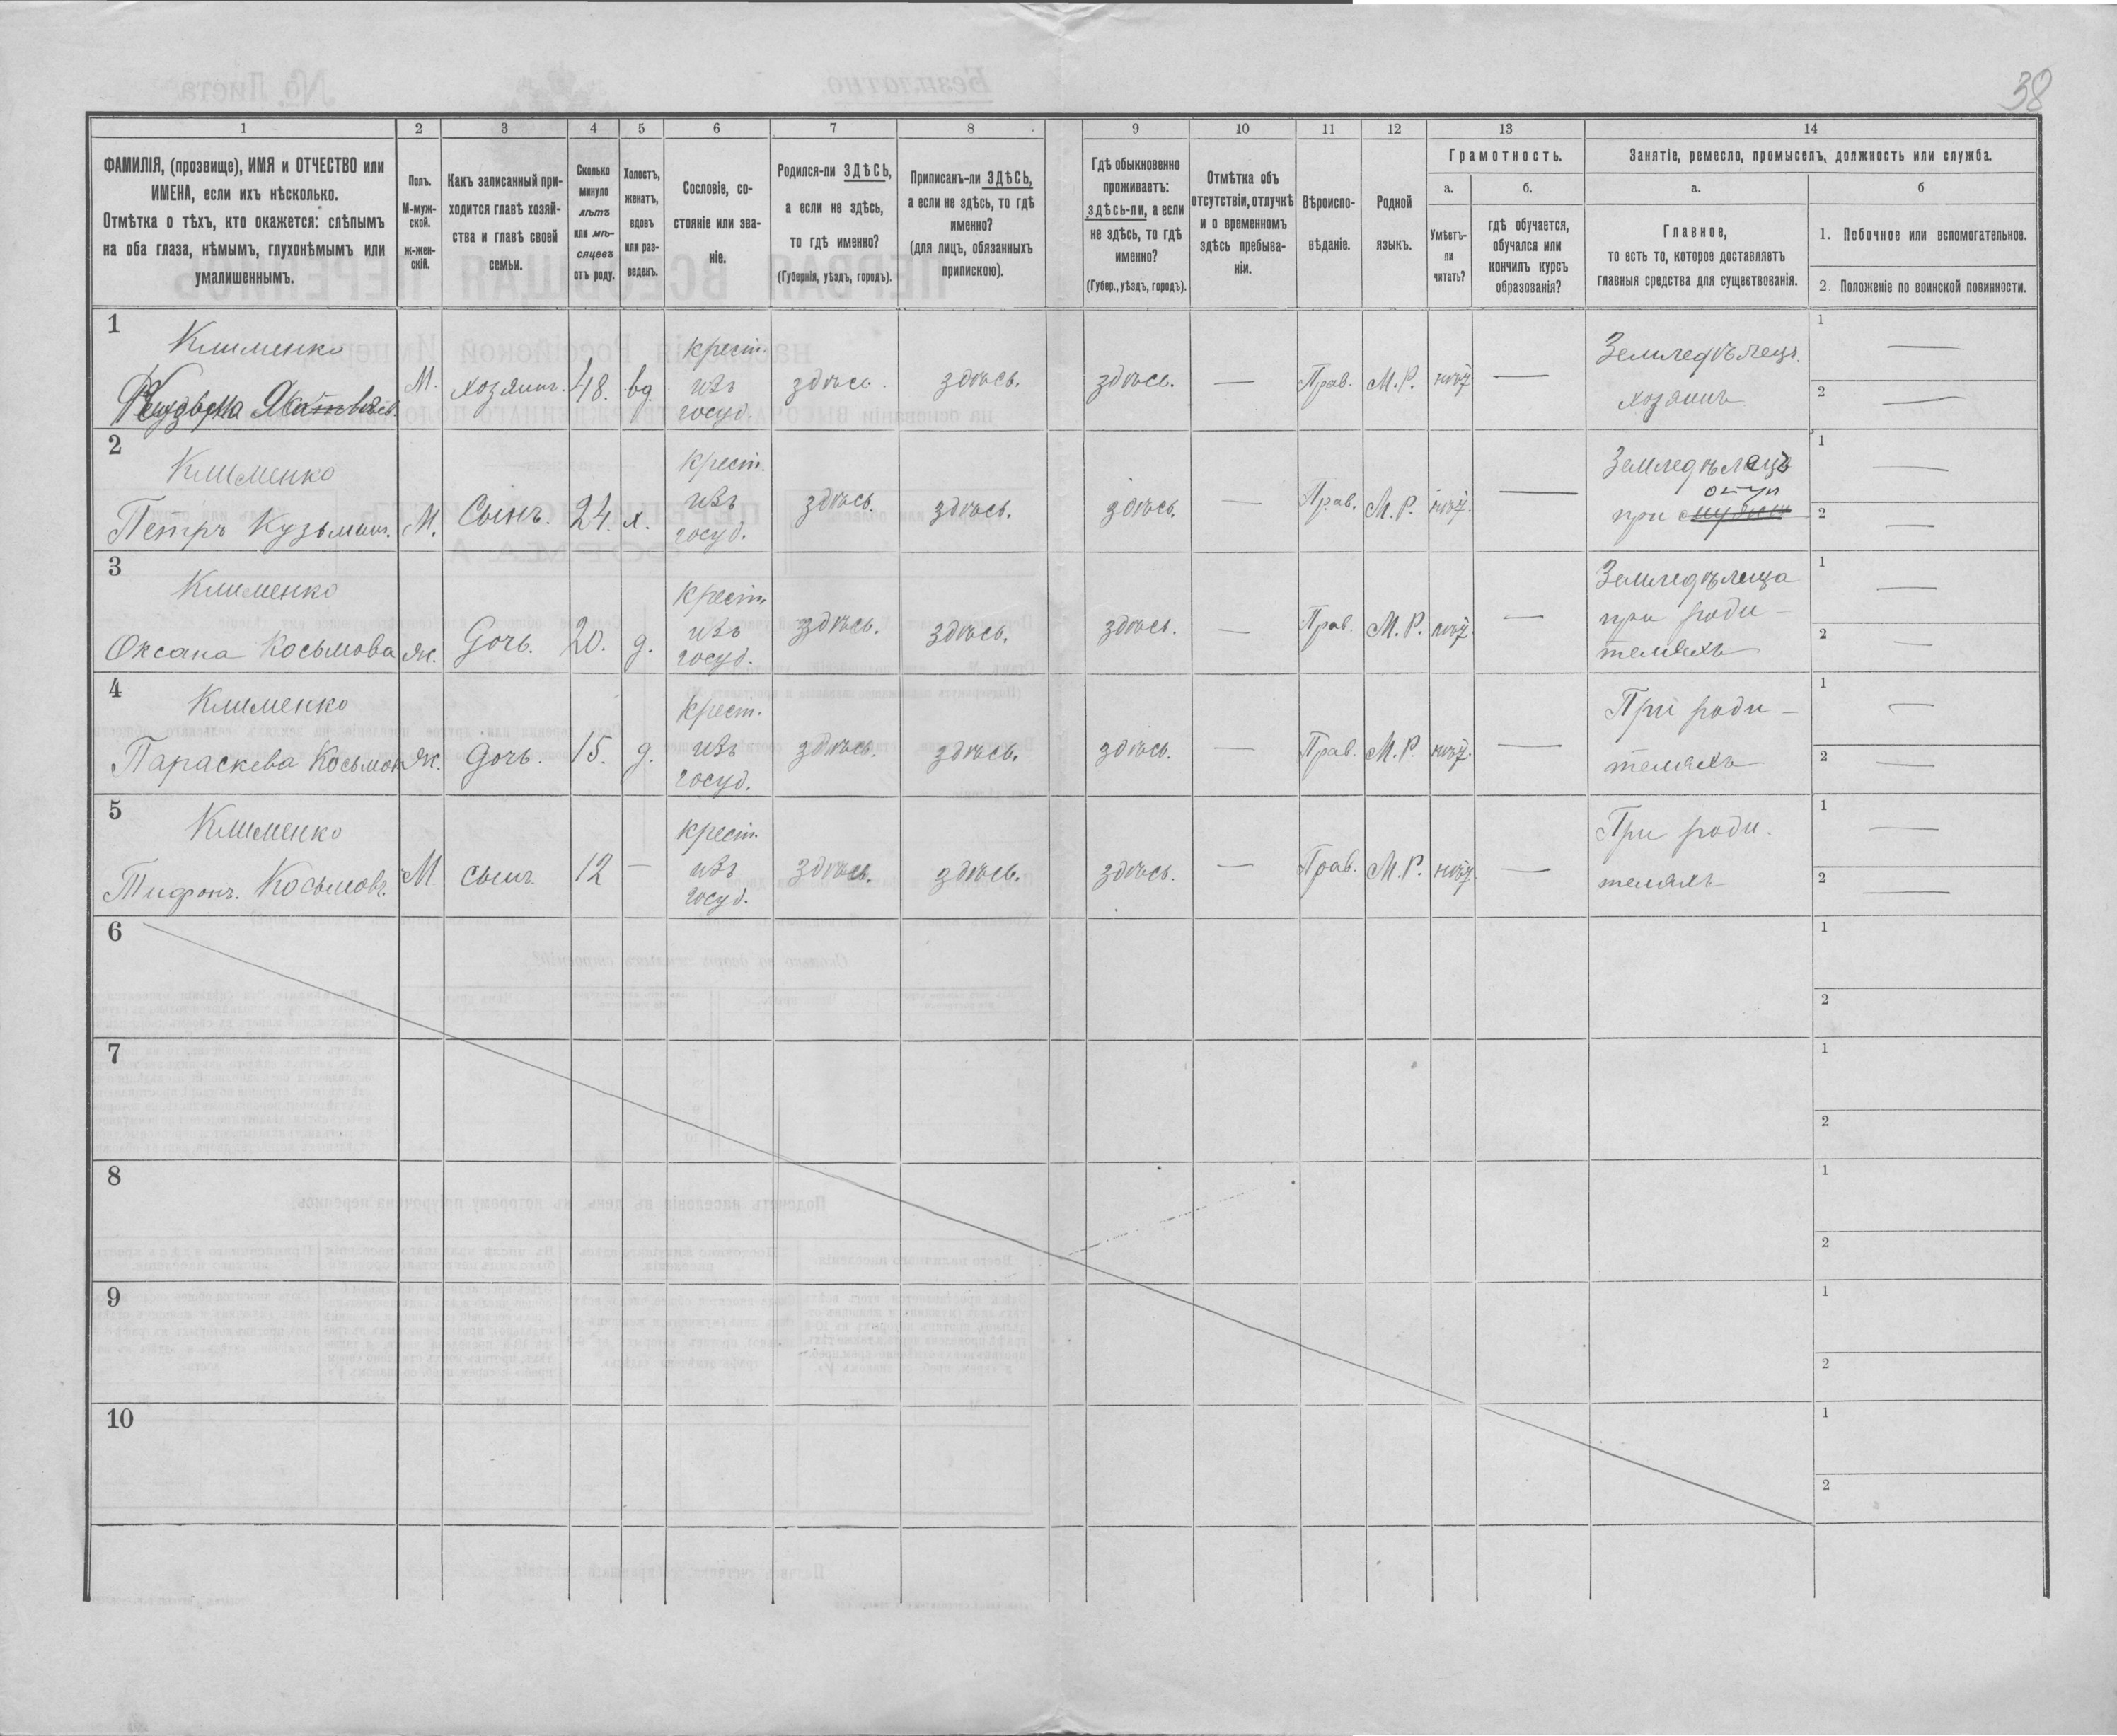 38
1 2 3 4 5 6 7 8 9 10 11 12 13 14
ФАМИЛІЯ, (прозвище), ИМЯ и ОТЧЕСТВО или
ИМЕНА, если ихъ нѣсколько.
Отмѣтка о тѣхъ, кто окажется: слѣпымъ
на оба глаза, нѣмымъ, глухонѣмымъ или
умалишеннымъ.
Полъ.
М-муж-
ской.
ж-жен-
скій.
Какъ записанный при-
ходится главѣ хозяй-
ства и главѣ своей
семьи.
Сколько
минуло
лѣтъ
или мѣ-
сяцевъ
отъ роду.
Холостъ,
женатъ,
вдовъ
или раз-
веденъ.
Сословіе, со-
стояніе или зва-
ніе.
Родился-ли ЗДѢСЬ,
а если не здѣсь,
то гдѣ именно?
(Губернія, уѣздъ, городъ).
Приписанъ-ли ЗДѢСЬ,
а если не здѣсь, то гдѣ
именно?
(для лицъ, обязанныхъ
припискою).
Гдѣ обыкновенно
проживаетъ:
здѣсь-ли, а если
не здѣсь, то гдѣ
именно?
(Губер., уѣздъ, городъ).
Отмѣтка объ
отсутствіи, отлучкѣ
и о временномъ
здѣсь пребыва-
ніи.
Вѣроиспо-
вѣданіе.
Родной
языкъ.
Грамотность.
а.
Умѣетъ-
ли
читать?
б.
гдѣ обучается,
обучался или
кончилъ курсъ
образованія?
Занятіе, ремесло, промыселъ, должность или служба.
а.
Главное,
то есть то, которое доставляетъ
главныя средства для существованія.
б
1. Побочное или вспомогательное.
2. Положеніе по воинской повинности.
1
Клименко
М.
хозяинъ.
48.
вд.
крест.
изъ
госуд.
здѣсь.
здѣсь.
здѣсь.
—
Прав.
М.Р.
нѣтъ
—
Земледѣлецъ.
хозяинъ
1 —
2 —
2
Клименко
Петръ Кузьминъ.
М.
Сынъ.
24.
х.
крест.
изъ
госуд.
здѣсь.
здѣсь.
здѣсь.
—
Прав.
М.Р.
нѣтъ.
—
Земледѣлецъ
при отцѣ
1 —
2 —
3
Клименко
Оксана Косьмова
ж.
Дочь.
20.
д.
крест.
изъ
госуд.
здѣсь.
здѣсь.
здѣсь.
—
Прав.
М.Р.
нѣтъ
—
Земледѣлица
при роди-
теляхъ
1 —
2 —
4
Клименко
Параскева Косьмов
ж.
дочь.
15.
д.
крест.
изъ
госуд.
здѣсь.
здѣсь.
здѣсь.
—
Прав.
М.Р.
нѣтъ.
—
При роди-
теляхъ
1 —
2 —
5
Клименко
Тифонъ. Косьмовъ.
М
сынъ
12
—
крест.
изъ
госуд.
здѣсь.
здѣсь.
здѣсь.
—
Прав.
М.Р.
нѣтъ.
—
При роди-
теляхъ
1 —
2 —
6
1
2
7
1
2
8
1
2
9
1
2
10
1
2